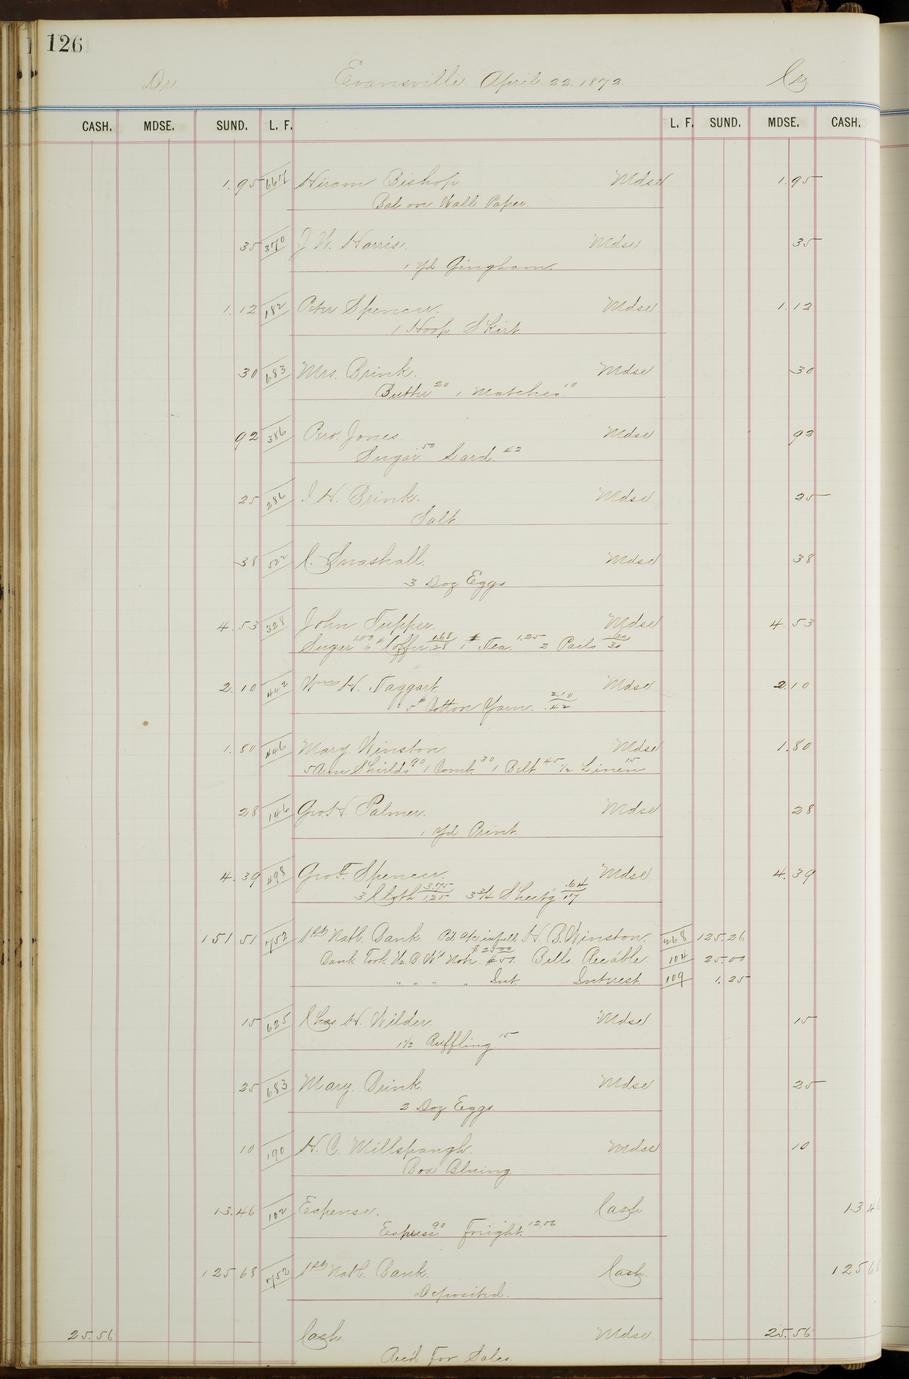 126
Dr Evansville April 22 1872 Cr
CASH. MDSE. SUND. L. F. L. F. SUND. MDSE. CASH.
1.95 Hiram Bishop Mdse 1.95
Bal on Wall Paper
35 370 J W. Harris Mdse 35
1 Yd Gingham
1.12 182 Spencer Mdse 1.12
1 Hoop Skirt
30 683 Mrs. Brink. Mdse 30
Butter 20 1 Matches 10
92 386 Jones Mdse 92
Sugar 50 Lard 42
25 286 J H. Brink. Mdse 25
Salt
38 522 Smashall Mdse 38
3 Doz Eggs
4.53 328 John Tupper. Mdse 4.53
Sugar 100 6# Coffee 168/28 1# Tea 1.25 2 Pails 60/30
2.10 442 Wm H. Taggart Mdse 2.10
5# Cotton Yarn 2.10/.42
1.80 446 Mary Winston Mdse 1.80
Shields 90 1 Comb 30 1 Belt 45 1/2 Linen 15
28 146 Geo H. Palmer. Mdse 28
1 Yd Print
4.39 498 Geo F. Spencer. Mdse 4.39
3 Cloth 3.75/1.25 3 3/4 Sheet'g .64/17
151 51 752 1st Natl. Bank Pd a/c in full H. B. Winston 468 125.26
Bank Took Note Bills Recable 104 25.00
" " " " Int Intrest 109 1.25
15 625 Chas H. Wilder Mdse 15
1 1/2 Ruffling 15
25 683 Mary. Brink Mdse 25
2 Doz Eggs
10 190 H. C. Millspaugh. Mdse 10
Box Bluing
13.46 102 Expense. Cash 13.46
Express 90 Freight 12.56
125 68 752 1st Natl. Bank. Cash 125 68
Deposited.
25.56 Cash Mdse 25.56
Rec'd For Sales